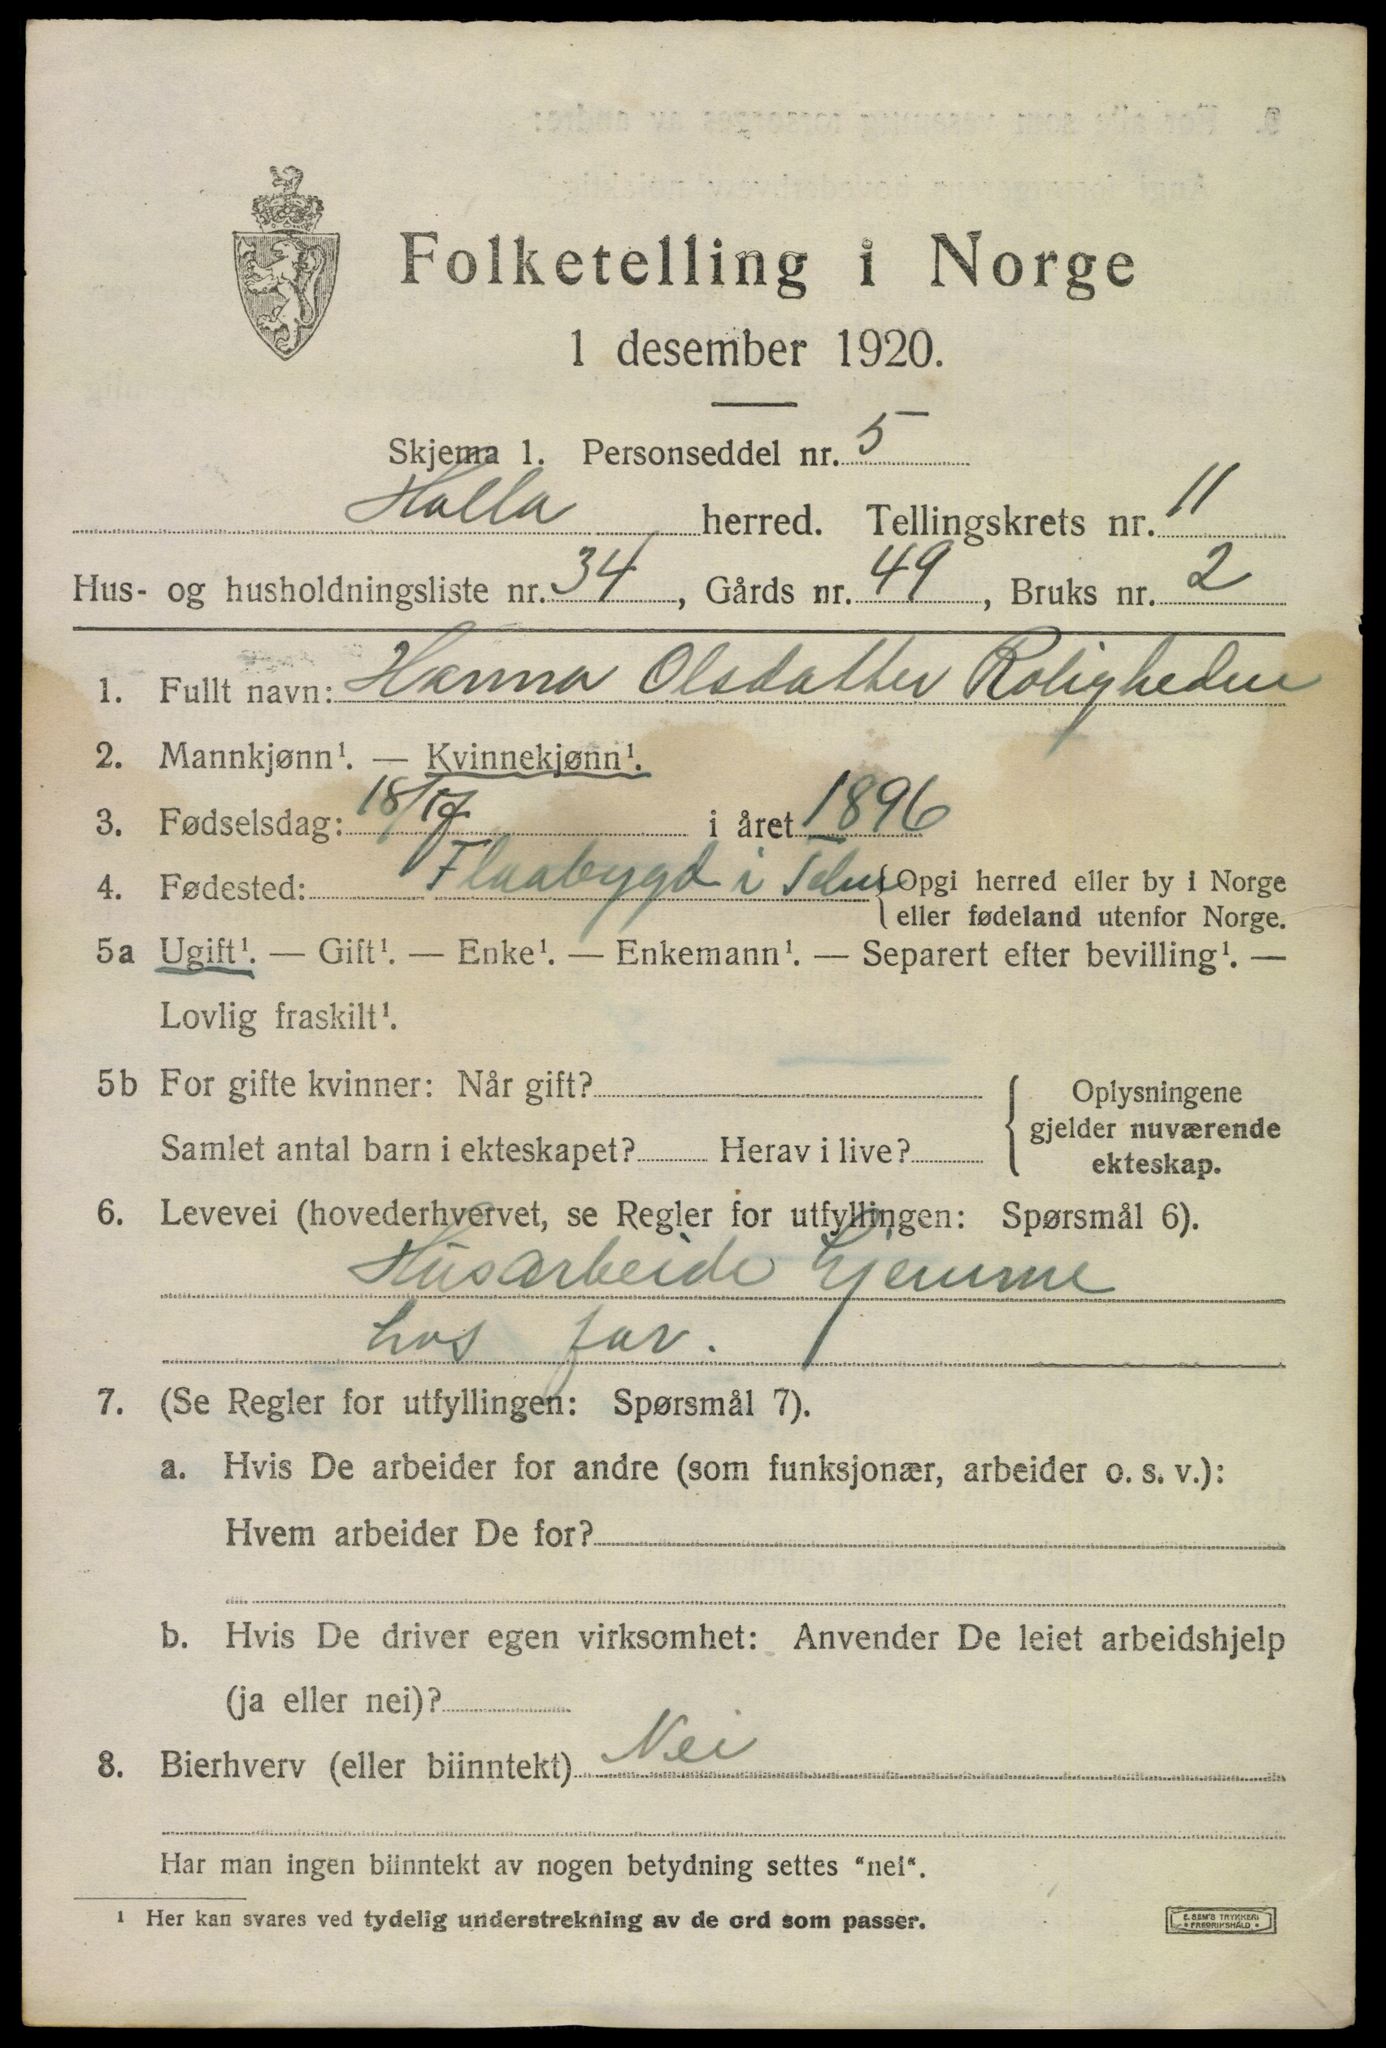 Folketelling i Norge
1 desember 1920.
Skjema 1. Personseddel nr. 5
Holla herred. Tellingskrets nr. 11
Hus- og husholdningsliste nr. 34, Gårds nr. 49, Bruks nr. 2
1. Fullt navn: Hanna Olsdatter Roligheden
2. Mannkjønn¹. — Kvinnekjønn¹.
3. Fødselsdag: 18/ i året 1896
4. Fødested: Flaabygd i { Opgi herred eller by i Norge
eller fødeland utenfor Norge.
5a Ugift¹. — Gift¹. — Enke¹. — Enkemann¹. — Separert efter bevilling¹. —
Lovlig fraskilt¹.
5b For gifte kvinner: Når gift? { Oplysningene
Samlet antal barn i ekteskapet? Herav i live? gjelder nuværende
ekteskap.
6. Levevei (hovederhvervet, se Regler for utfyllingen: Spørsmål 6).
Husarbeide hjemme
hos far.
7. (Se Regler for utfyllingen: Spørsmål 7).
a. Hvis De arbeider for andre (som funksjonær, arbeider o. s. v.):
Hvem arbeider De for?
b. Hvis De driver egen virksomhet: Anvender De leiet arbeidshjelp
(ja eller nei)?
8. Bierhverv (eller biinntekt) Nei
Har man ingen biinntekt av nogen betydning settes "nei".
¹ Her kan svares ved tydelig understrekning av de ord som passer.
E. SEM'S TRYKKERI
FREDRIKSHALD